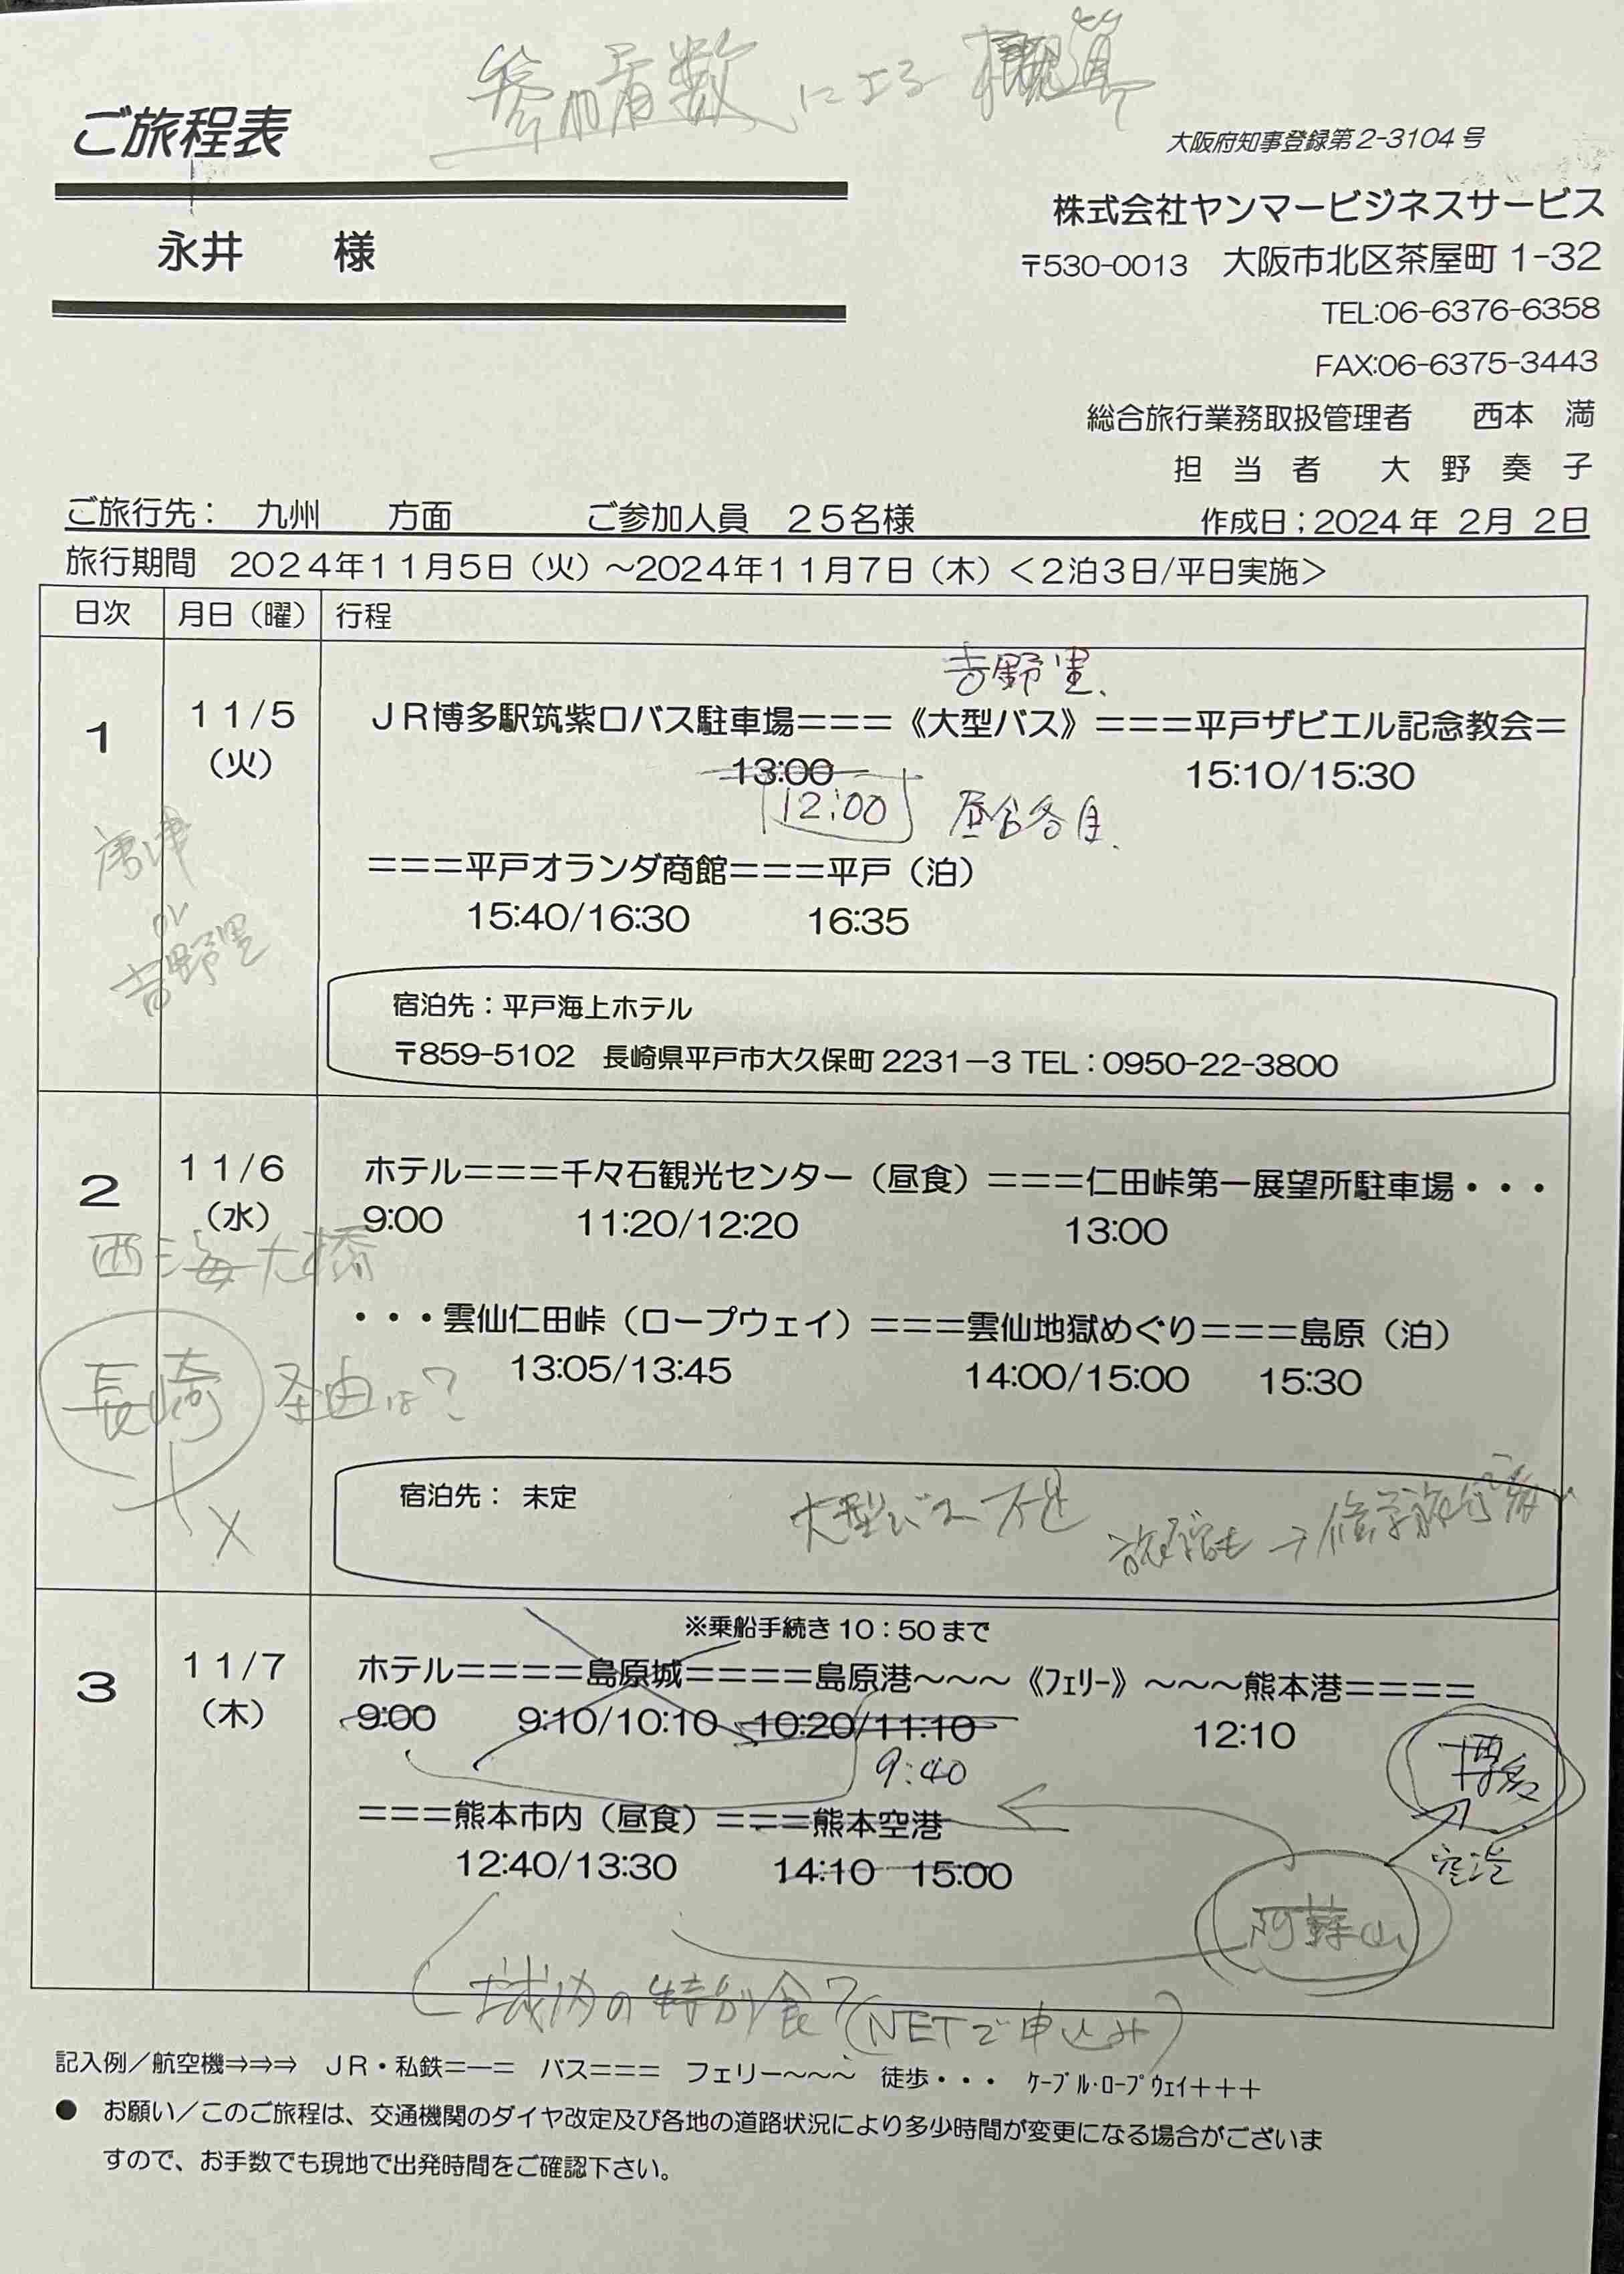 参加者数による概算
ご旅程表
大阪府知事登録第2-3104号
永井 様
株式会社ヤンマービジネスサービス
〒530-0013 大阪市北区茶屋町1-32
TEL:06-6376-6358
FAX:06-6375-3443
総合旅行業務取扱管理者 西本 満
担当者 大野奏子
ご旅行先： 九州 方面 ご参加人員 25名様 作成日；2024年 2月 2日
旅行期間 2024年11月5日（火）～2024年11月7日（木）＜2泊3日/平日実施＞
日次 月日（曜） 行程
吉野里
1 11/5 （火） JR博多駅筑紫口バス駐車場＝＝＝《大型バス》＝＝＝平戸ザビエル記念教会＝
13:00 15:10/15:30
12:00 昼食各自
＝＝＝平戸オランダ商館＝＝＝平戸（泊）
15:40/16:30 16:35
唐津
or
吉野里
宿泊先：平戸海上ホテル
〒859-5102 長崎県平戸市大久保町2231－3 TEL：0950-22-3800
2 11/6 （水） ホテル＝＝＝千々石観光センター（昼食）＝＝＝仁田峠第一展望所駐車場・・・
9:00 11:20/12:20 13:00
西海大橋
・・・雲仙仁田峠（ロープウェイ）＝＝＝雲仙地獄めぐり＝＝＝島原（泊）
13:05/13:45 14:00/15:00 15:30
長崎 経由は？
×
宿泊先： 未定
大型バス不足
旅館も→修学旅行
3 11/7 （木） ※乗船手続き10：50まで
ホテル＝＝＝＝島原城＝＝＝＝島原港～～～《ﾌｪﾘｰ》～～～熊本港＝＝＝＝
9:00 9:10/10:10 10:20/11:10 12:10
9:40
博多
空港
＝＝＝熊本市内（昼食）＝＝＝熊本空港
12:40/13:30 14:10 15:00
阿蘇山
城内の特別食？(NETで申込み)
記入例／航空機⇒⇒⇒ JR・私鉄＝―＝ バス＝＝＝ フェリー～～～ 徒歩・・・ ｹｰﾌﾞﾙ･ﾛｰﾌﾟｳｪｲ＋＋＋
● お願い／このご旅程は、交通機関のダイヤ改定及び各地の道路状況により多少時間が変更になる場合がございま
すので、お手数でも現地で出発時間をご確認下さい。